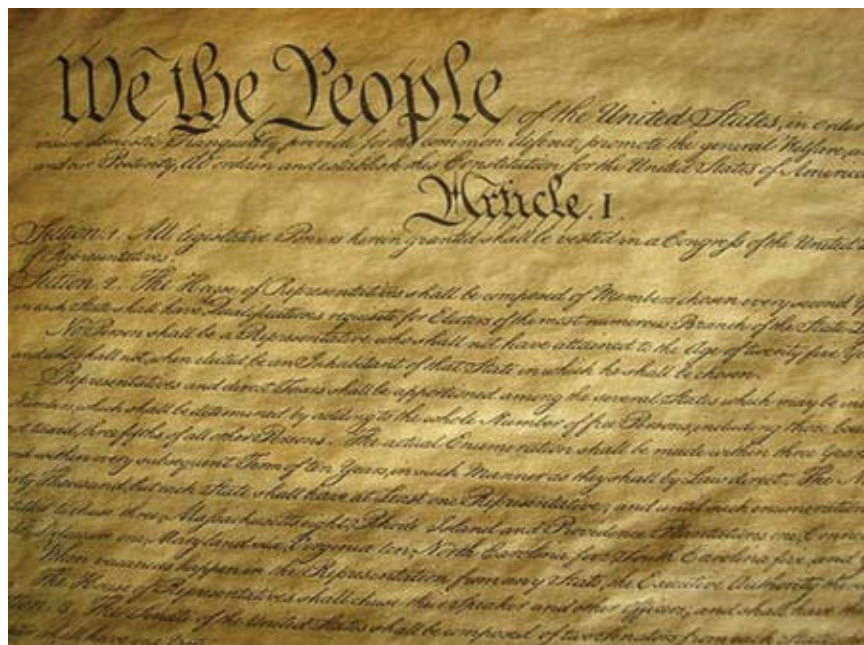 We the People of the United States, in Order
insure domestic Tranquility, provide for the common defence, promote the general Welfare, an
and our Posterity, do ordain and establish this Constitution for the United States of America
Article. I.
Section. 1. All legislative Powers herein granted shall be vested in a Congress of the United
of Representatives.
Section. 2. The House of Representatives shall be composed of Members chosen every second
in each State shall have Qualifications requisite for Electors of the most numerous Branch of the State
No Person shall be a Representative who shall not have attained to the Age of twenty five
and who shall not, when elected, be an Inhabitant of that State in which he shall be chosen.
Representatives and direct Taxes shall be apportioned among the several States which may be in
Numbers, which shall be determined by adding to the whole Number of free Persons, including those bou
not taxed, three fifths of all other Persons. The actual Enumeration shall be made within three Years
and within every subsequent Term of ten Years, in such Manner as they shall by Law direct. The
thirty Thousand, but each State shall have at Least one Representative; and until such enumeration
entitled to chuse three, Massachusetts eight, Rhode Island and Providence Plantations one, Connec
Delaware one, Maryland six, Virginia ten, North Carolina five, South Carolina five, and
When vacancies happen in the Representation from any State, the Executive Authority there
The House of Representatives shall chuse their Speaker and other Officers; and shall have the
Section. 3. The Senate of the United States shall be composed of two Senators from each State,
shall have one Vote.